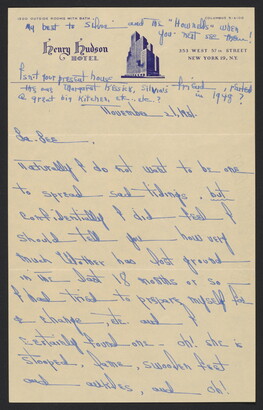 1200 OUTSIDE ROOMS WITH BATH
COLUMBUS 5-6100
My best to Silvia and the Howards when
you next see them!
Henry Hudson
HOTEL
353 WEST 57TH STREET
NEW YORK 19, N.Y.
Isn't your present house
the one Margaret Kessler, Silvia's friend, rented
a great big kitchen, etc., etc.? in 1948?
November 21, 1961.
Dear Bee,
Naturally I do not want to be one
to spread sad tidings, but
confidentially I did feel I
should tell you how very
much Mother has lost ground
in the last 18 months or so –
I had tried to prepare myself for
a change, etc. and
certainly found one – oh! she is
stooped, lame, swollen feet
and ankles, and oh!